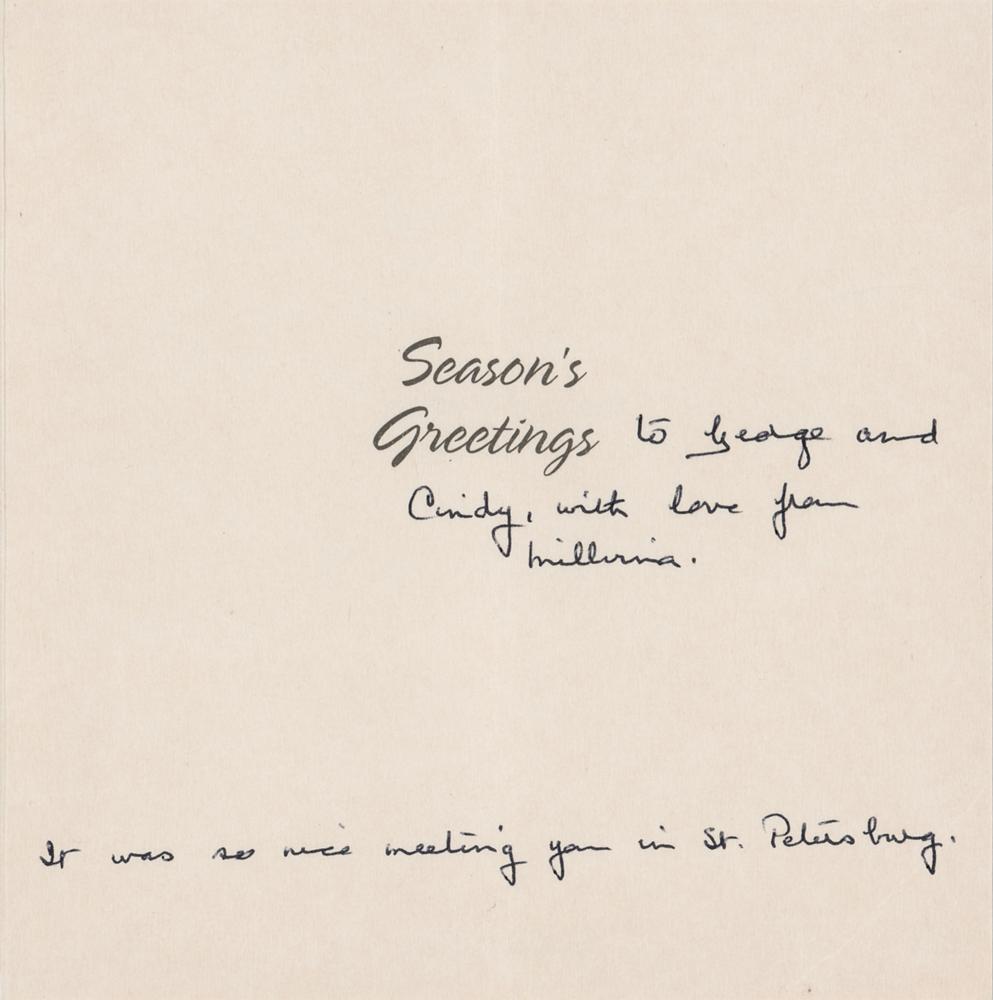 Season's
Greetings to George and
Cindy, with love from
Millvina.
It was so nice meeting you in St. Petersburg.